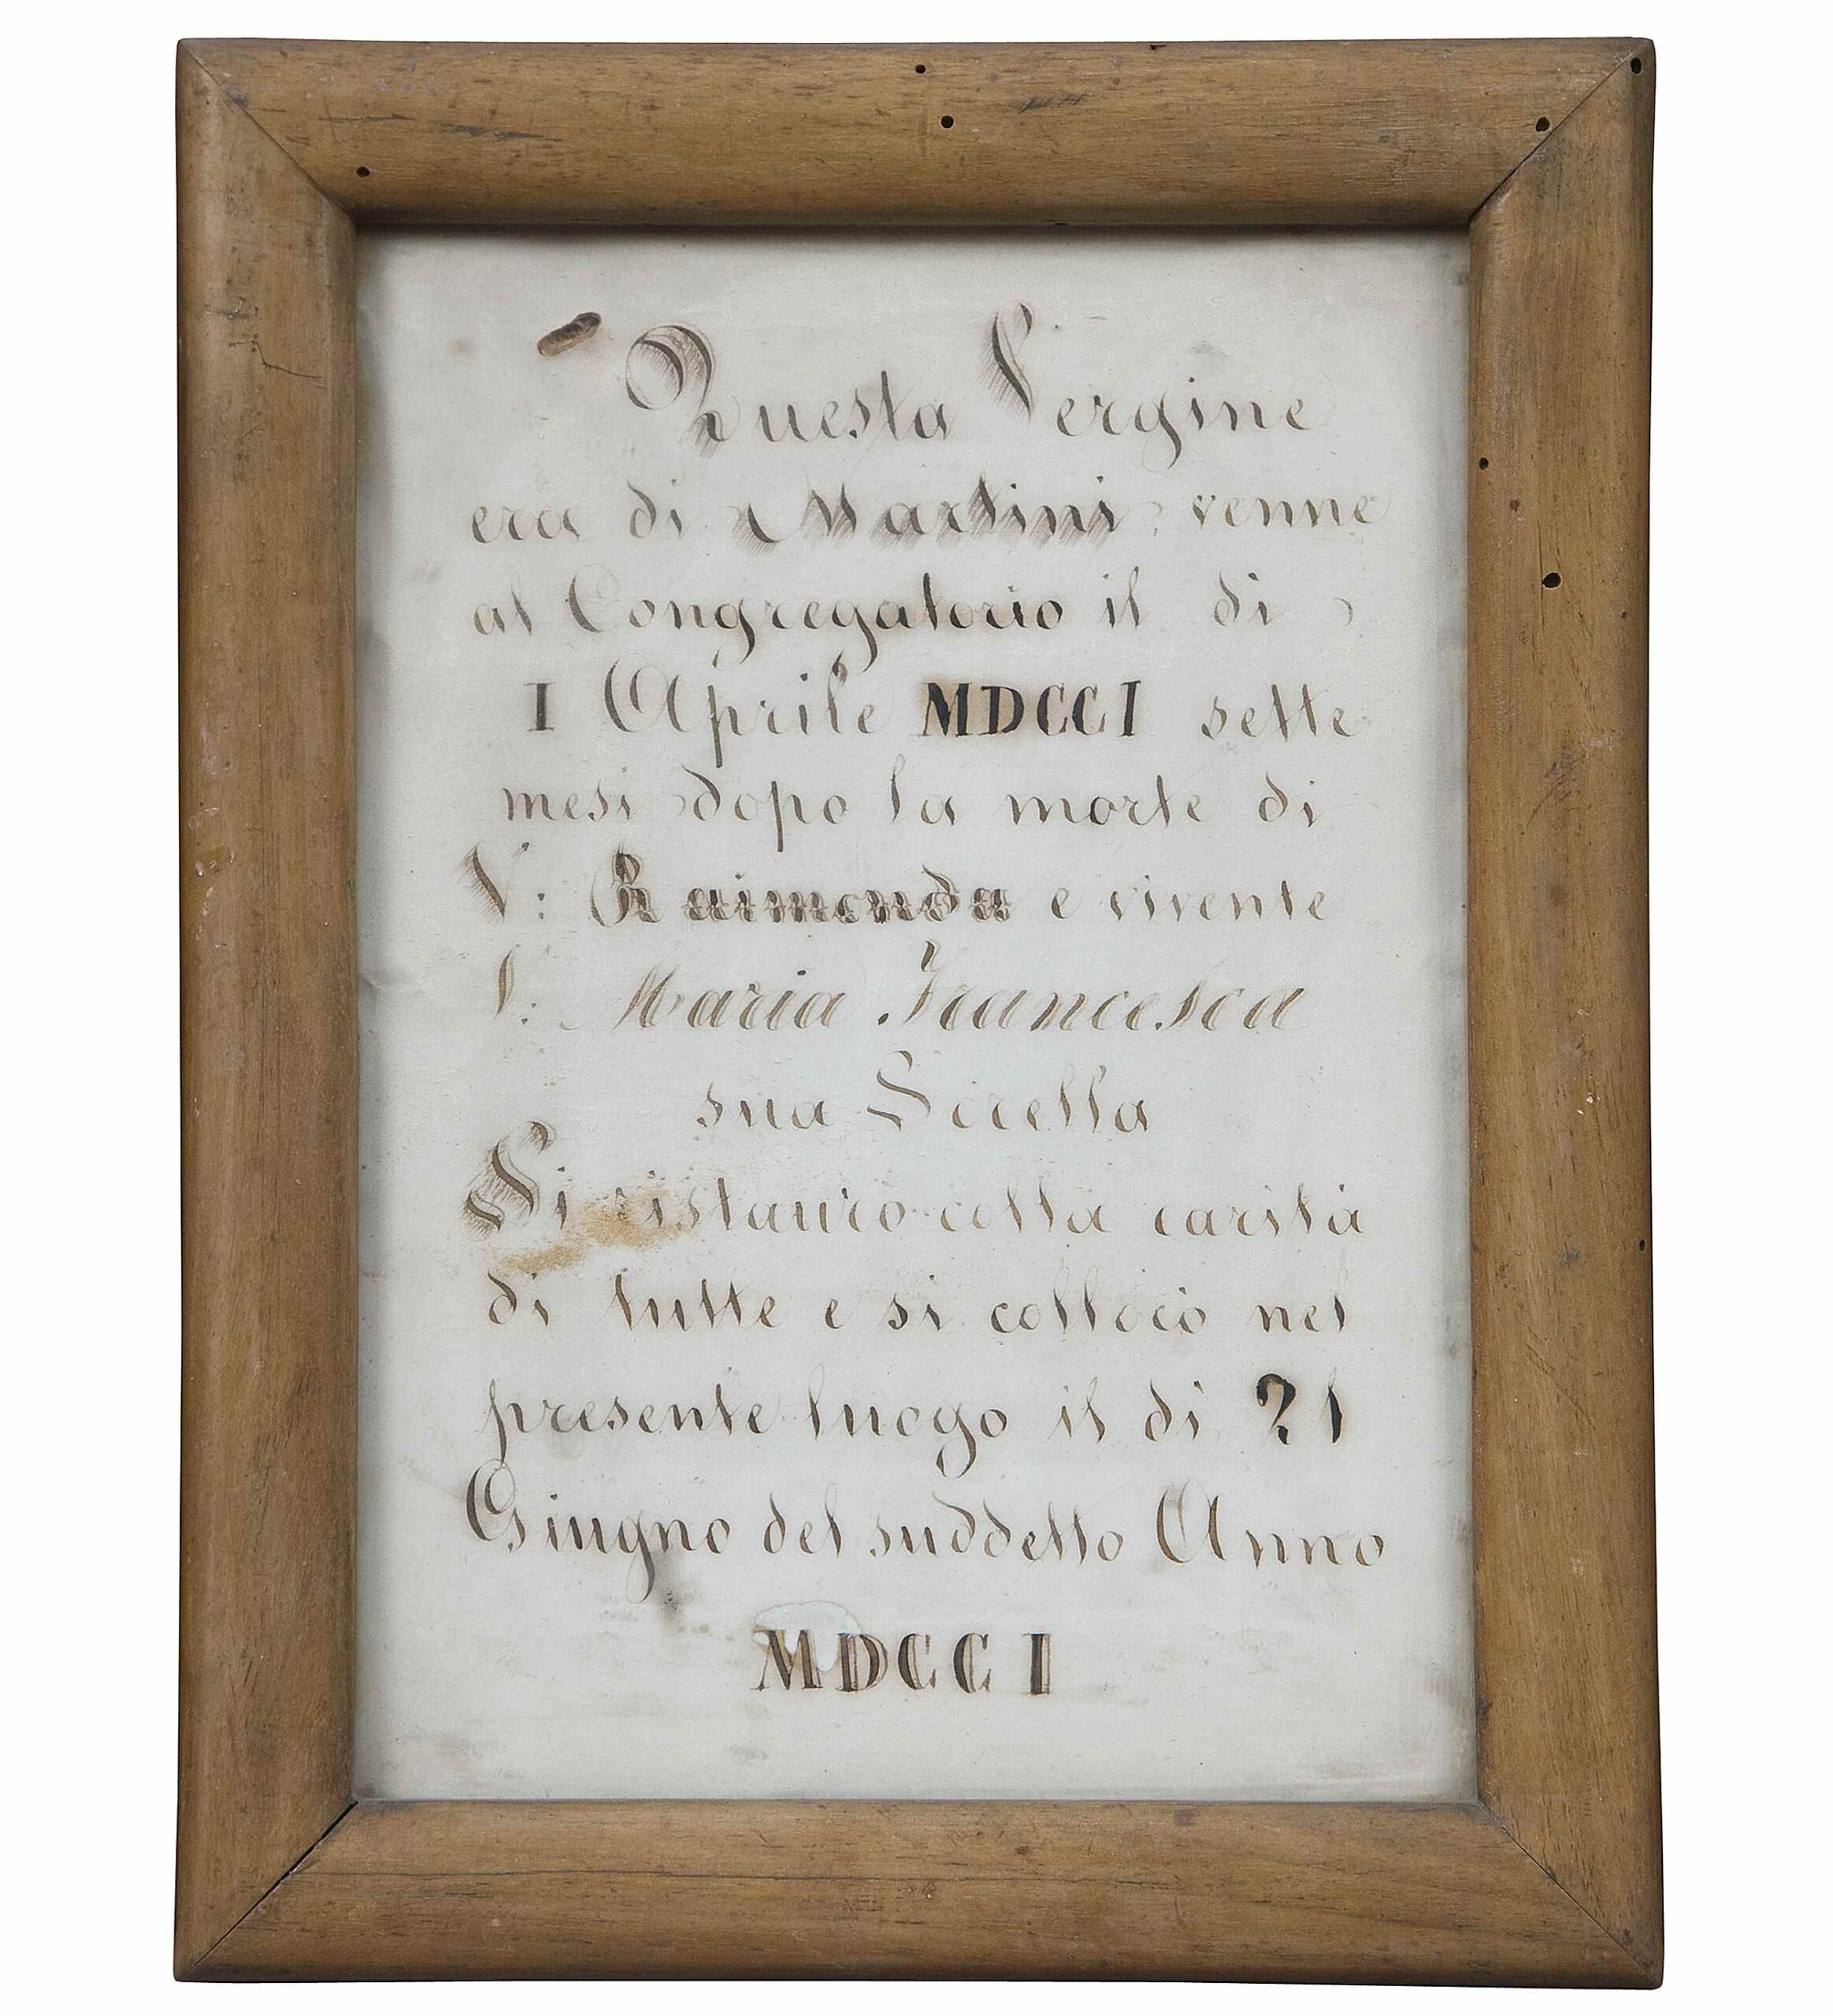 Questa Vergine
era di Martini venne
al Congregatorio il di
I Aprile MDCCI sette
mesi dopo la morte di
V: Raimonda e vivente
Maria Francesca
sua Sorella
Si ristauro colla carità
di tutte e si collocò nel
presente luogo il di 21
Giugno del suddetto Anno
MDCCI